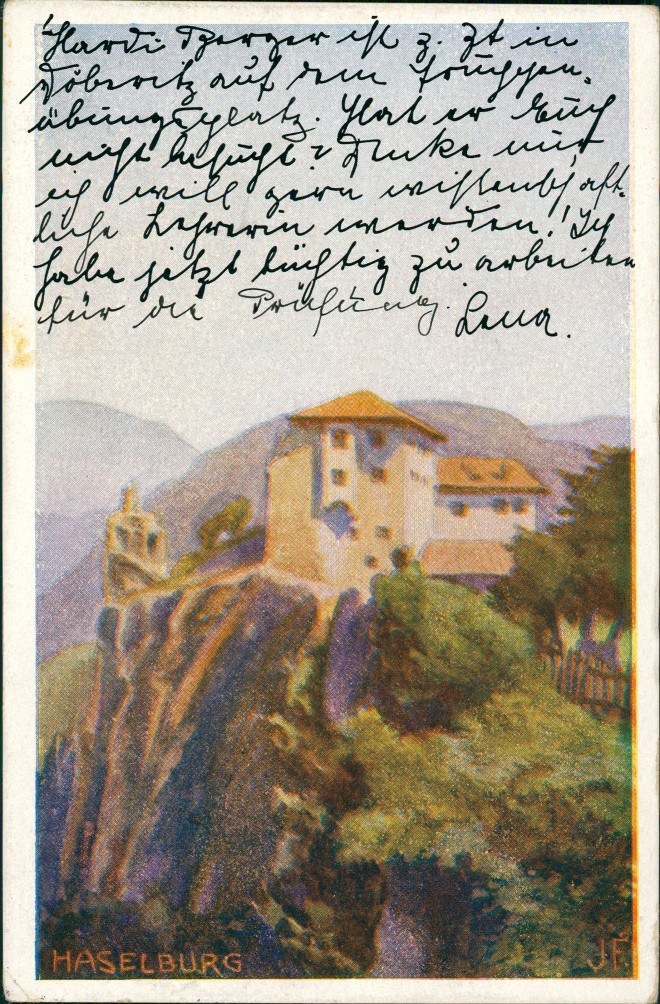 Hardi Berger ist z. Zt in
Döberitz auf dem Truppen-
übungsplatz. Hat er Euch
nicht besucht? Denke nur,
ich will gern wissenschaft-
liche Lehrerin werden! Ich
habe jetzt tüchtig zu arbeiten
für die Prüfung. Lena.
HASELBURG
J.F.